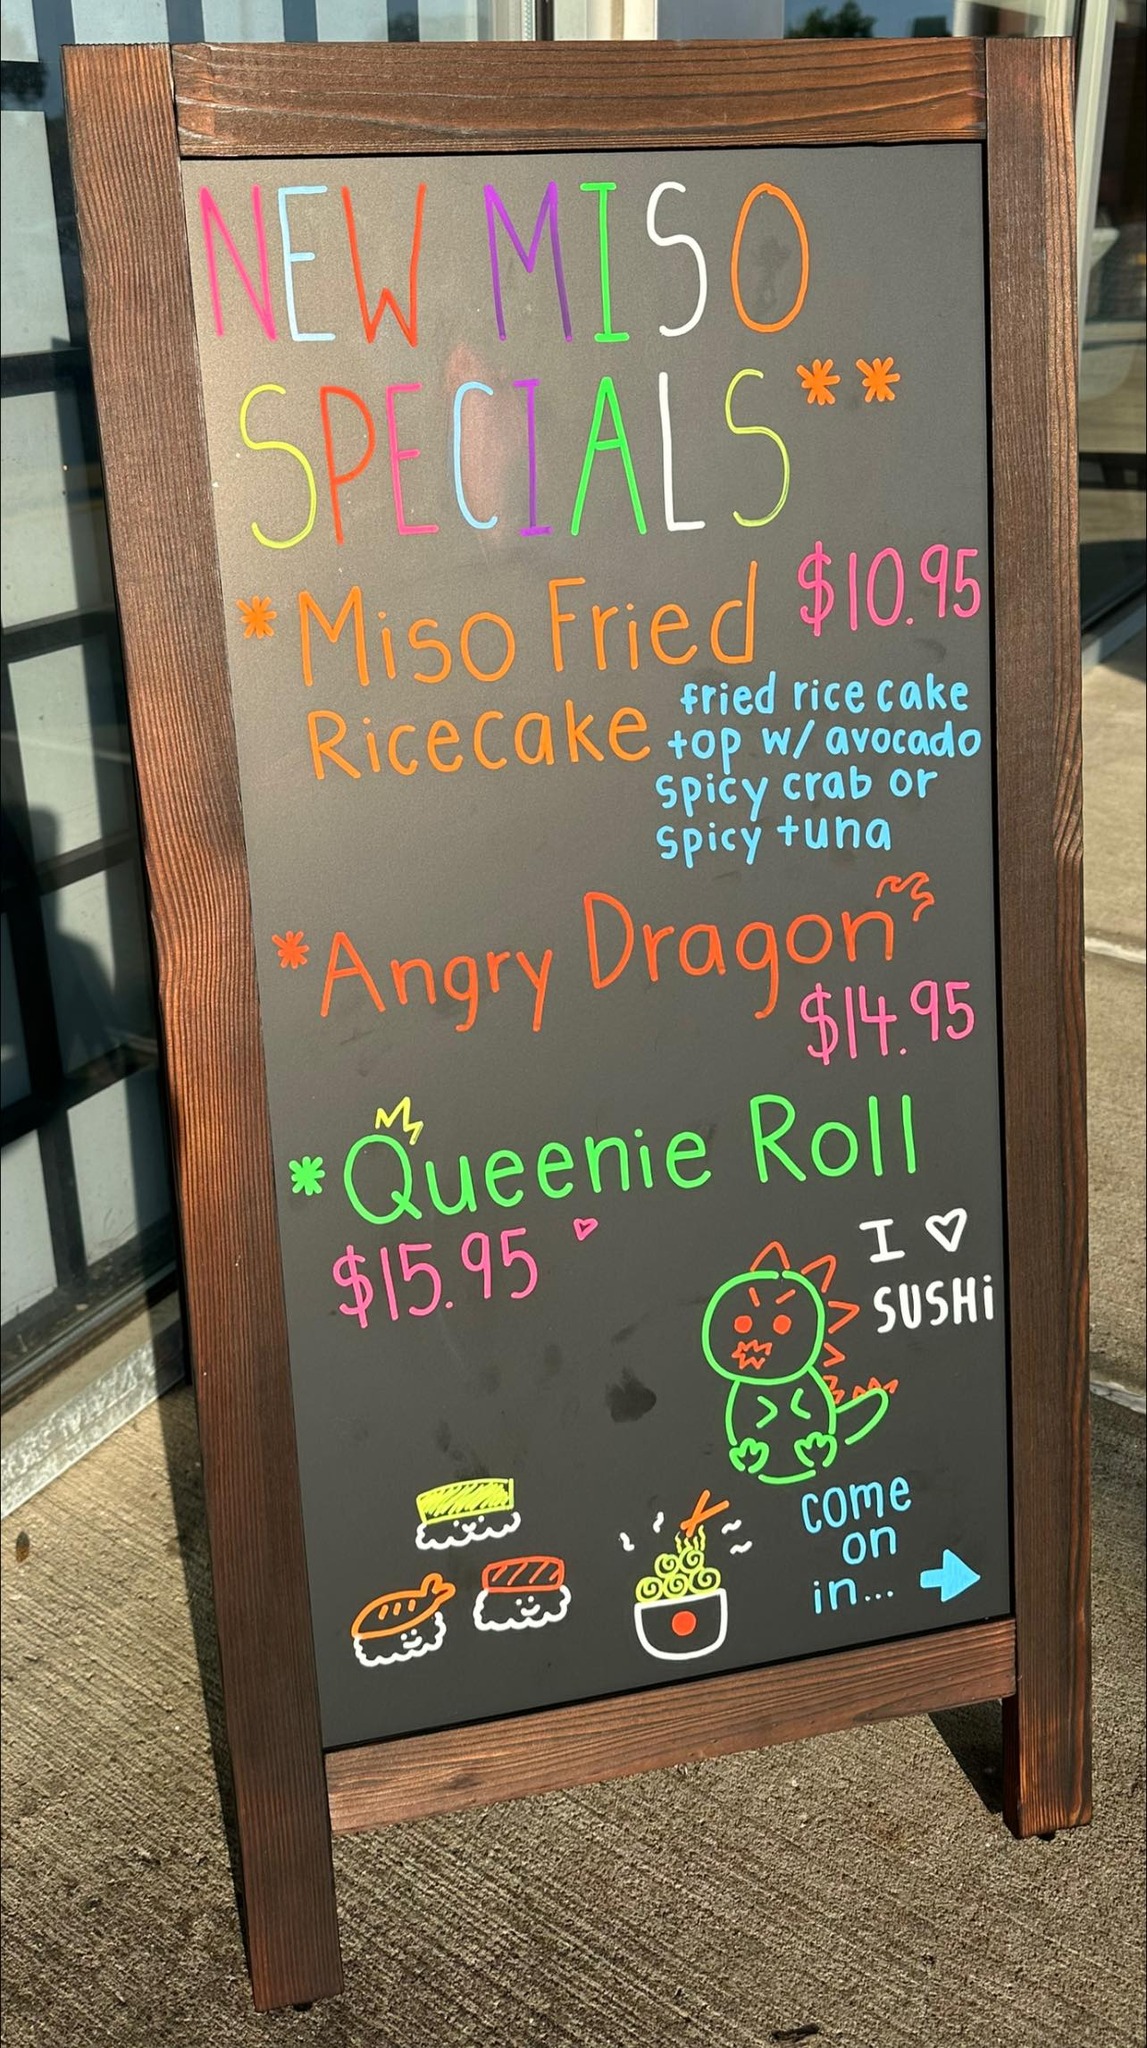 NEW MISO
SPECIALS**
*Miso Fried $10.95
Ricecake
fried rice cake
top w/ avocado
spicy crab or
spicy tuna
*Angry Dragon
$14.95
*Queenie Roll
$15.95
I ♡
SUSHi
come
on
in... →